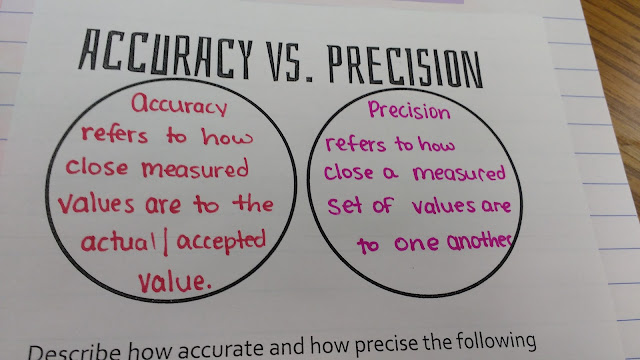 ACCURACY VS. PRECISION
Accuracy
refers to how
close measured
values are to the
actual/accepted
value.
Precision
refers to how
close a measured
set of values are
to one another
Describe how accurate and how precise the following